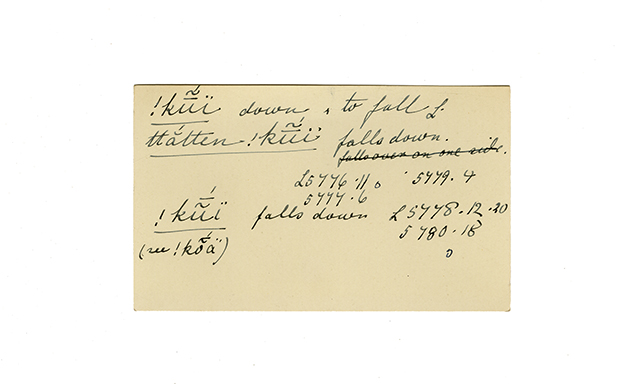 !kũ̄́ï down, to fall L
ttătten !kũ̄́ï falls down.
falls over on one side.
L5776.11 5779.4
5777.6
!kũ̄́ï falls down L5778.12.20
5780.18
(see !kȭ́ä)